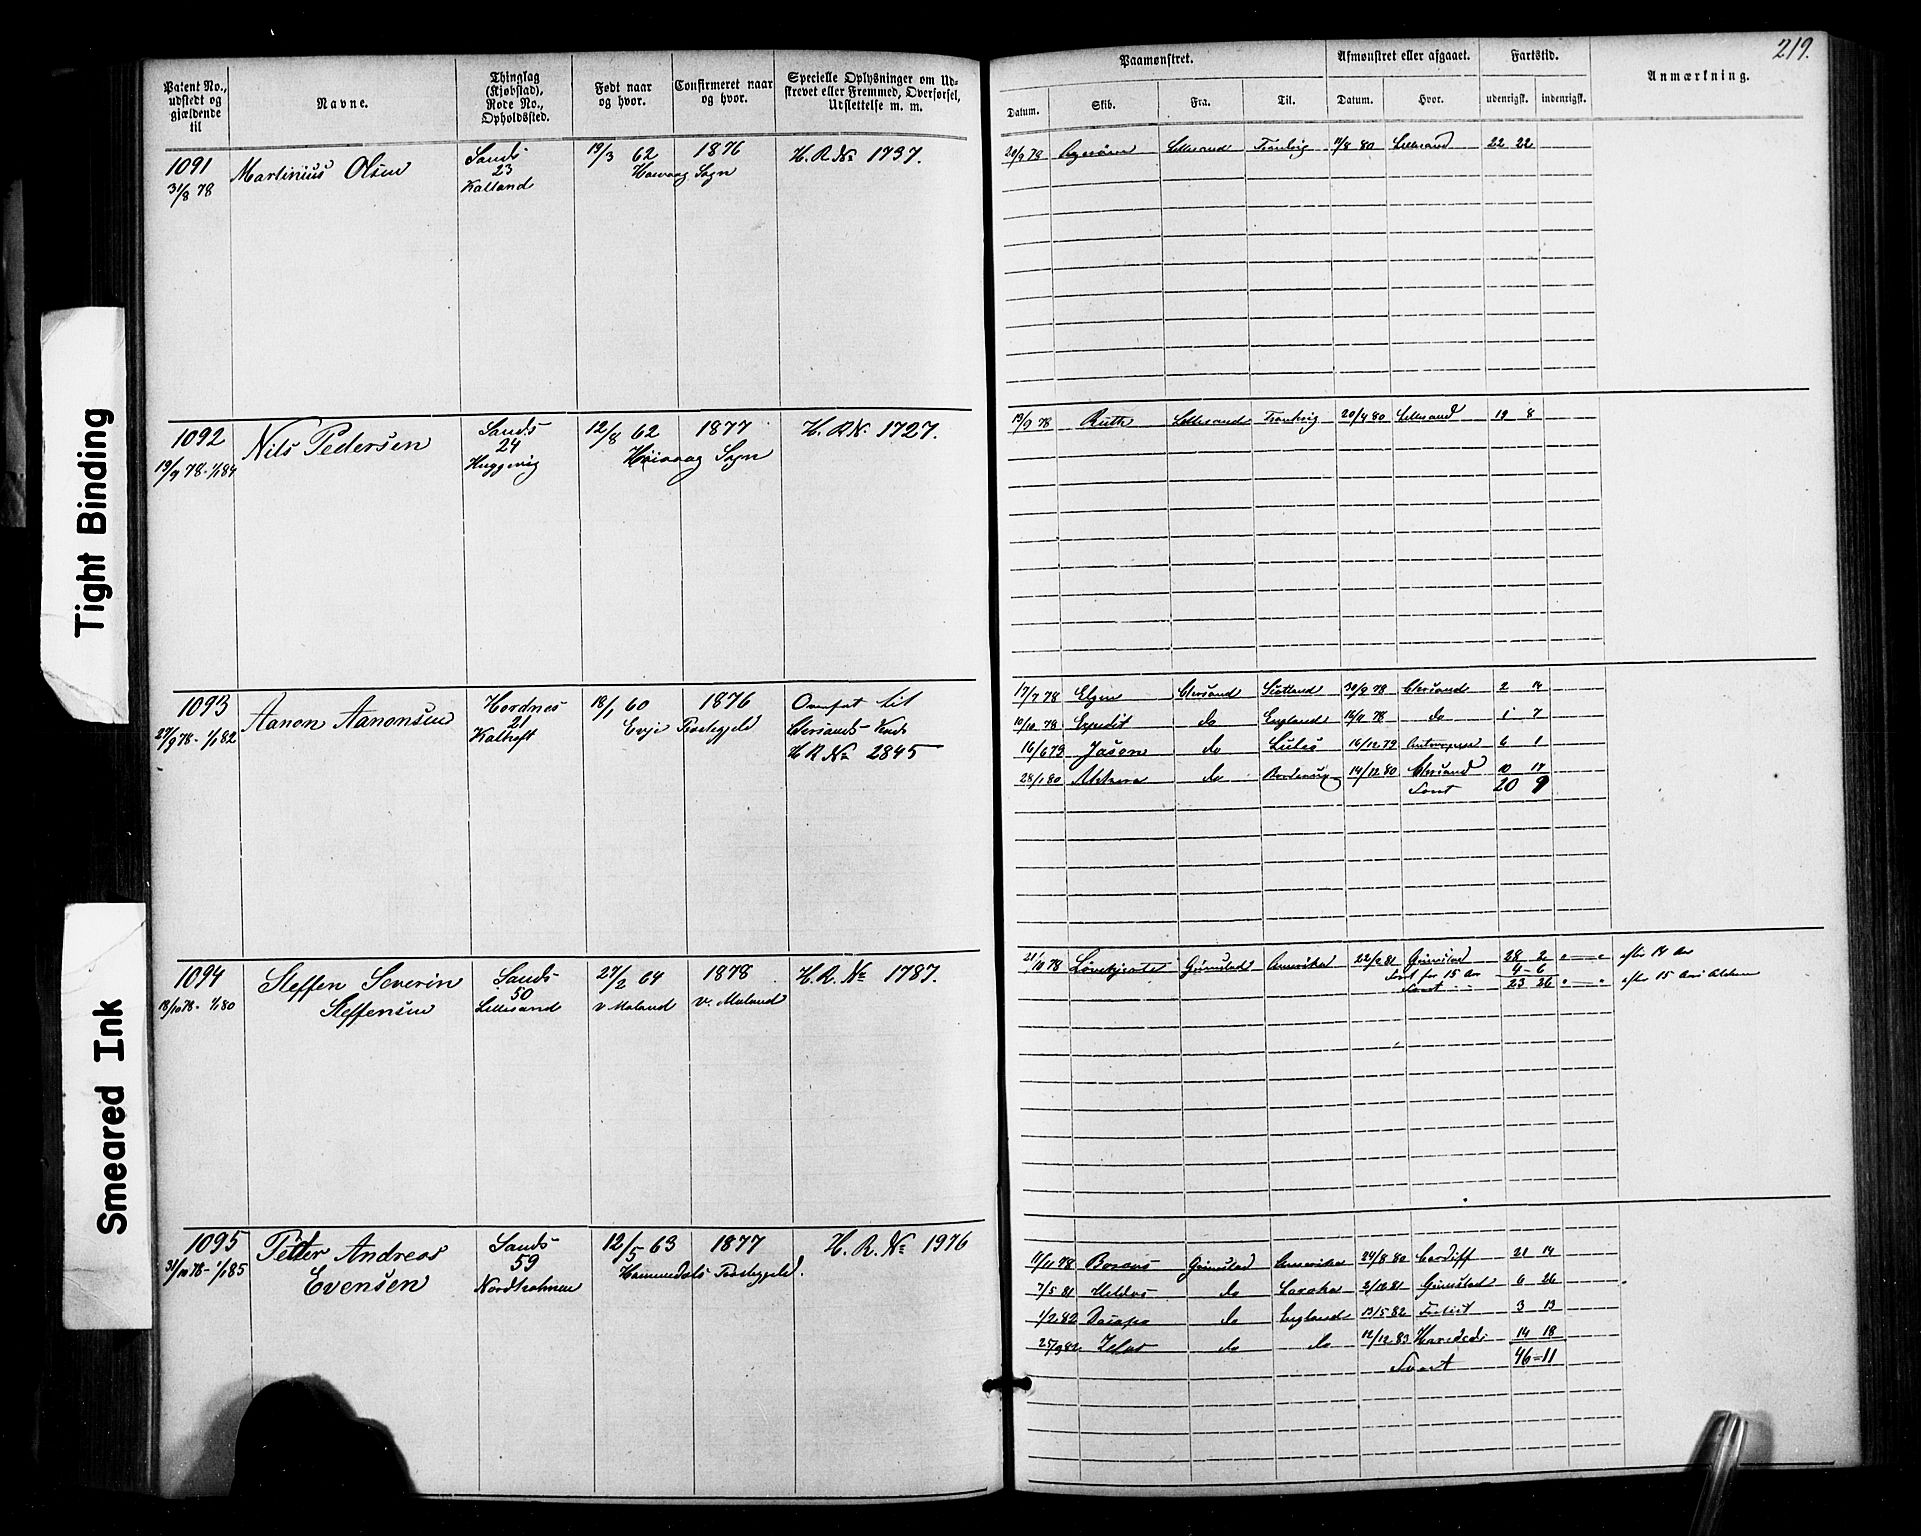 Tight Binding
Smeared Ink
Patent No., udstedt og gjældende til
Navne.
Thinglag (Kjøbstad), Rode No., Opholdssted.
Født naar og hvor.
Confirmeret naar og hvor.
Specielle Oplysninger om Udskrevet eller Fremmed, Overførsel, Udslettelse m. m.
1091 Martinius Olsen Sands 19/3 62 1876 H. R. No 1737.
31/8 78 23 Sogn
Kalland
1092 Nils Pedersen Sands 12/8 62 1877 H. R. N. 1727.
19/9 78 - 1/1 84 24 Høivaag Sogn
Huggevig
1093 Aanon Aanonsen 18/1 60 1876 til
27/9 78 - 1/1 82 21 Evje Præstegjeld
H R No 2845
1094 Steffen Severin Sands 27/2 64 1878 H. R. No 1787.
18/10 78 - 1/1 80 Steffensen 50 v. Moland v. Moland
Lillesand
1095 Petter Andreas Sands 12/5 63 1877 H. R. No 1976
31/10 78 - 1/1 85 Evensen 59 Præstegjeld.
219.
Paamønstret.
Afmønstret eller afgaaet.
Fartstid.
Anmærkning.
Datum. Skib. Fra. Til. Datum. Hvor. udenrigsk. indenrigsk.
20/9 78 Lillesand 80 Lillesand 22 22
19/9 78 Ruth Lillesand 80 Lillesand 19 8
17/7 78 Elgin Chrsand Skotland 30/9 78 Chrsand 2 14
10/10 78 Expedit do England 78 do 1 7
16/6 79 Jason do Luleå 16/12 79 Antwerpen 6 1
28/1 80 do 14/12 80 Chrsand 10 17
20 9
21/10 78 Grimstad Amerika 81 Grimstad 28 2 efter 14 Ar
for 15 Ar 4 - 6
23 26 efter 15 Ars
11/11 78 Grimstad Amerika 24/8 80 Cardiff 21 14
7/5 81 do 2/10 81 Grimstad 6 26
1/2 82 do England 13/5 82 3 13
25/9 82 do do 12/12 83 14 18
46 = 11